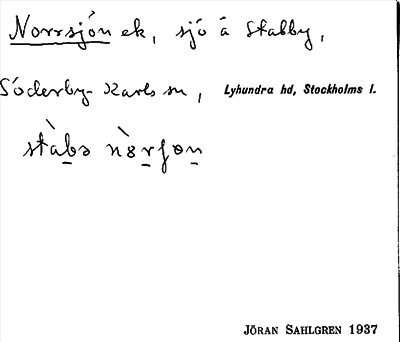 Norrsjön ek, sjö å Stabby,
Söderby-Karls sn, Lyhundra hd, Stockholms l.
stàbə nòrʃøn
JÖRAN SAHLGREN 1937